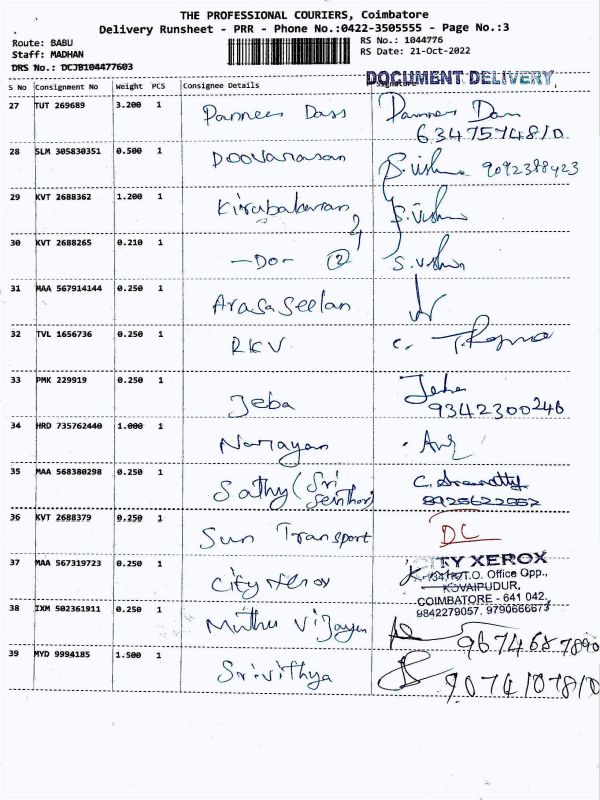 THE PROFESSIONAL COURIERS, Coimbatore
Delivery Runsheet - PRR - Phone No.:0422-3505555 - Page No.:3
Route: BABU RS No.: 1044776
Staff: MADHAN RS Date: 21-Oct-2022
DRS No.: DCJB104477603
DOCUMENT DELIVERY
S No Consignment No Weight PCS Consignee Details Signature
27 TUT 269689 3.200 1 Panneer Dass
6347574810
28 SLM 305830351 0.500 1 Poovarasan S. Vishnu 9092388423
29 KVT 2688362 1.200 1 Kirubakaran S. Vishnu
30 KVT 2688265 0.210 1 -Do- 2 S. Vishnu
31 MAA 567914144 0.250 1 Arasaseelan
32 TVL 1656736 0.250 1 RKV
33 PMK 229919 0.250 1 Jeba Jeba
9342300246
34 HRD 735762440 1.000 1 Narayan
35 MAA 568380298 0.250 1 Sathy (Sri
36 KVT 2688379 0.250 1 Sun Transport DC
37 MAA 567319723 0.250 1 City Xerox CITY XEROX
R.T.O. Office Opp.,
KOVAIPUDUR,
COIMBATORE - 641 042.
9842279057, 9790666673
38 IXM 502361911 0.250 1 Muthu Vijayan 9674687890
39 MYD 9994185 1.500 1 Srivithya 9074107810